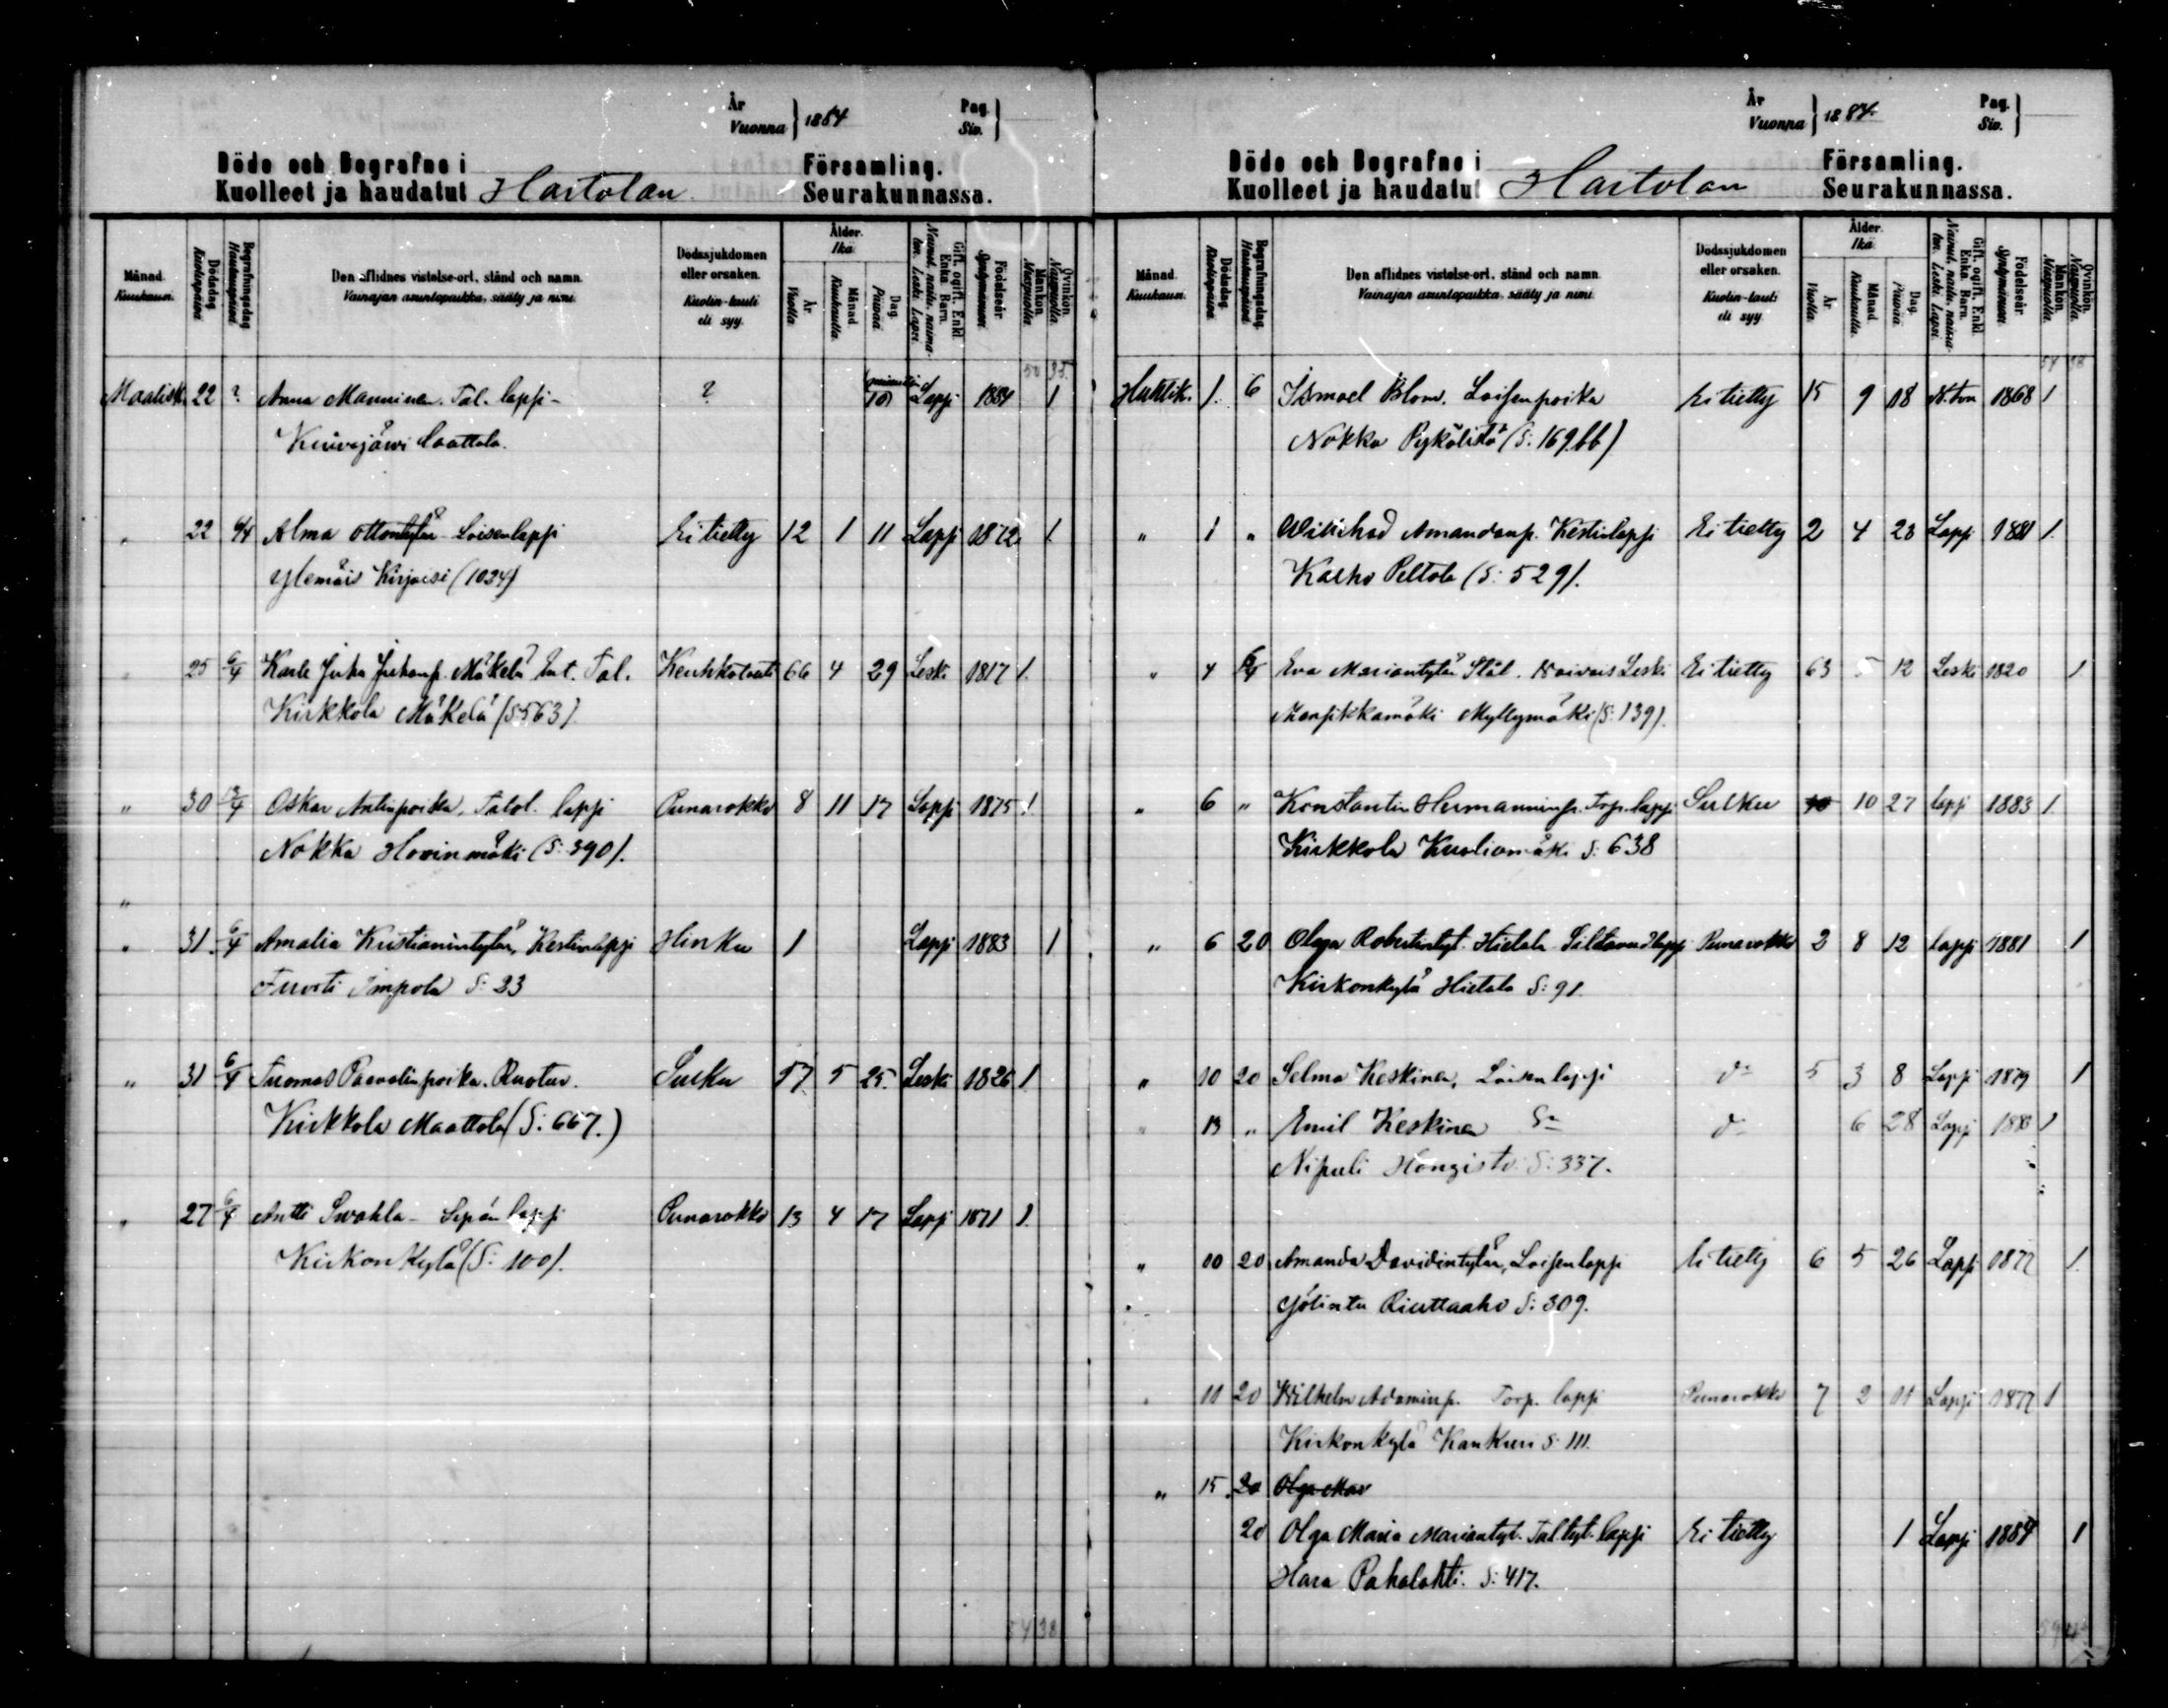 År
Vuonna } 1884
Pag.
Siv. }
Döde och Begrafne i
Kuolleet ja haudatut Hartolan
Församling.
Seurakunnassa.
Månad. Kuukausi.
Dödsdag Kuolinpäivä
Begrafningsdag Hautauspäivä
Den aflidnes vistelse-ort, stånd och namn.
Vainajan asuntopaikka, sääty ja nimi.
Dödssjukdomen eller orsaken.
Kuolin-tauti eli syy.
Ålder. Ikä
År. Vuotta
Månad. Kuukautta.
Dag. Päivää
Gift, ogift. Enkl. Enka Barn.
Nainut, naitu, naimaton. Leski. Lapsi.
Födelseår Syntymävuosi
Mankön. Miespuolia
Qvinkön. Naispuolia.
50 35
Maalisk. 22 ? Anna Manninen. Tal. lapsi - ? 10 Lapsi 1884 1
22 6/4 Alma Ottontytär Loisenlapsi Ei tietty 12 1 11 Lapsi 1872 1
Ylemäis Kirjaisi (1034)
25 6/4 Karle Juha Juhanp. Mäkelä Ent. Tal. Keuhkotauti 66 4 29 Leski 1817 1
Kirkkola Mäkelä (S 563)
" 30 13/4 Oskar Antinpoika, Talol. lapsi Punarokko 8 11 17 Lapsi 1875 1
Nokka Hovinmäki (S: 390).
"
" 31 6/4 Amalia Kristianintytär, Kestinlapsi Hinku 1 Lapsi 1883 1
Impola S: 23
" 31 6/4 Tuomas Paavalinpoika. Ruotus. Sulku 57 5 25 Leski 1826 1
Kirkkola Maattola (S: 667.)
" 27 6/4 Antti Swahla - Sepän lapsi Punarokko 13 4 17 Lapsi 1871 1
Kirkonkylä (S: 100).
54 38
År
Vuonna } 1884
Pag.
Siv. }
Döde och Begrafne i
Kuolleet ja haudatut Hartolan
Församling.
Seurakunnassa.
Månad. Kuukausi.
Dödsdag Kuolinpäivä
Begrafningsdag. Hautauspäivä
Den aflidnes vistelse-ort, stånd och namn.
Vainajan asuntopaikka, sääty ja nimi.
Dödssjukdomen eller orsaken.
Kuolin-tauti eli syy
Ålder. Ikä
År. Vuotta.
Månad. Kuukautta.
Dag. Päivää
Gift, ogift. Enkl. Enka Barn.
Nainut, naitu, naimaton. Leski. Lapsi.
Födelseår Syntymävuosi
Mankön. Miespuolia.
Qvinkön. Naispuolia.
54 38
Huhtik. 1 6 Ismael Blom. Loisenpoika Ei tietty 15 9 18 N. ton 1868 1
Nokka Pykälistö (S: 169.bb)
" 1 " Amandanp. Kestinlapsi Ei tietty 2 4 23 Lapsi 1881 1
Kalho Peltola (S: 529).
" 4 6/4 Eva Mariantytär Stål. Waivais Leski Ei tietty 63 5 12 Leski 1820 1
Mansikkamäki Myllymäki (S: 139).
" 6 " Konstantin Hermanninp. Torp. lapsi Sulku 10 10 27 lapsi 1883 1
Kirkkola S: 638
" 6 20 Olga Robertintyt. Hietala Punarokko 2 8 12 lapsi 1881 1
Kirkonkylä Hietala S: 91.
" 10 20 Selma Keskinen, Loisen lapsi d:o 5 3 8 Lapsi 1879 1
" 13 " Emil Keskinen d:o d:o 6 28 Lapsi 1883 1
Nipuli Hongisto S: 337.
" 10 20 Amanda Davidintytär, Loisenlapsi Ei tietty 6 5 26 Lapsi 1877 1
Riuttaaho S: 309.
" 11 20 Wilhelm Adaminp. Torp. lapsi Punarokko 7 2 11 Lapsi 1877 1
Kirkonkylä Kankuri S: 111.
" 15 20 Olga Mar
20 Olga Maria Mariantyt. Tal.tyt. lapsi Ei tietty 1 Lapsi 1884 1
Hara Pahalahti. S: 417.